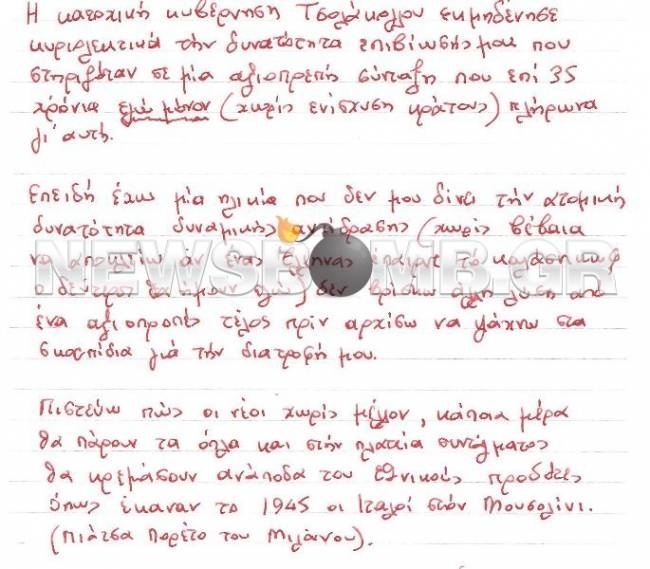 Η κατοχική κυβέρνηση Τσολάκογλου εκμηδένησε
κυριολεκτικά την δυνατότητα επιβίωσής μου που
στηριζόταν σε μία αξιοπρεπή σύνταξη που επί 35
χρόνια εγώ μόνον (χωρίς ενίσχυση κράτους) πλήρωνα
γι' αυτή.
Επειδή έχω μία ηλικία που δεν μου δίνει την ατομική
δυνατότητα δυναμικής αντίδρασης (χωρίς βέβαια
να αποκλείω αν ένας Έλληνας έπαιρνε το καλάσνικωφ
NEWSBOMB.GR
ο δεύτερος θα ήμουν εγώ) δεν βρίσκω άλλη λύση από
ένα αξιοπρεπές τέλος πρίν αρχίσω να ψάχνω στα
σκουπίδια γιά την διατροφή μου.
Πιστεύω πως οι νέοι χωρίς μέλλον, κάποια μέρα
θα πάρουν τα όπλα και στην πλατεία συντάγματος
θα κρεμάσουν ανάποδα του εθνικούς προδότες
όπως έκαναν το 1945 οι Ιταλοί στον Μουσολίνι.
(Πιάτσα Πορέτο του Μιλάνου).